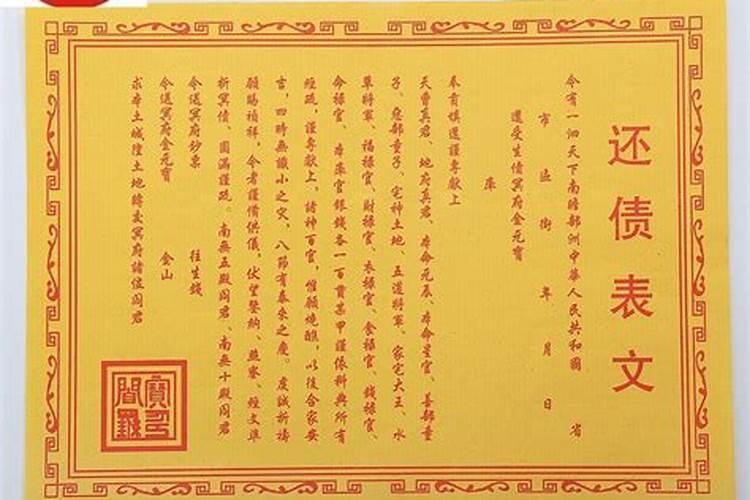 还债表文
今有一泗天下南瞻部洲中華人民共和國 省
市 區 街 年 月 日
還受生債冥府金元寶
庫
奉賁填還謹專献上
天曹真君、地府真君、本命元辰、本命星官、善部童
子、惡部童子、宅神土地、五道將軍、家宅大王、水
草將軍、福禄官、財禄官、衣禄官、食禄官、錢禄官、
命禄官、本庫官銀錢各一百貫某甲謹依科典所有
經疏，謹專献上，諸神百官，惟願燒醮，以後合家安
言，四時無譏小之灾，八節有泰來之慶。虔誠祈禱
願賜禎祥，令者謹備供儀，伏望鑒納、燕寮、經文準
折冥債、圓滿謹疏。南無五殿阎君、南無十殿阎君
令送冥府鈔票 往生錢
令送冥府金元寶 金山
求本土城隍土地轉交冥府諸位阎君